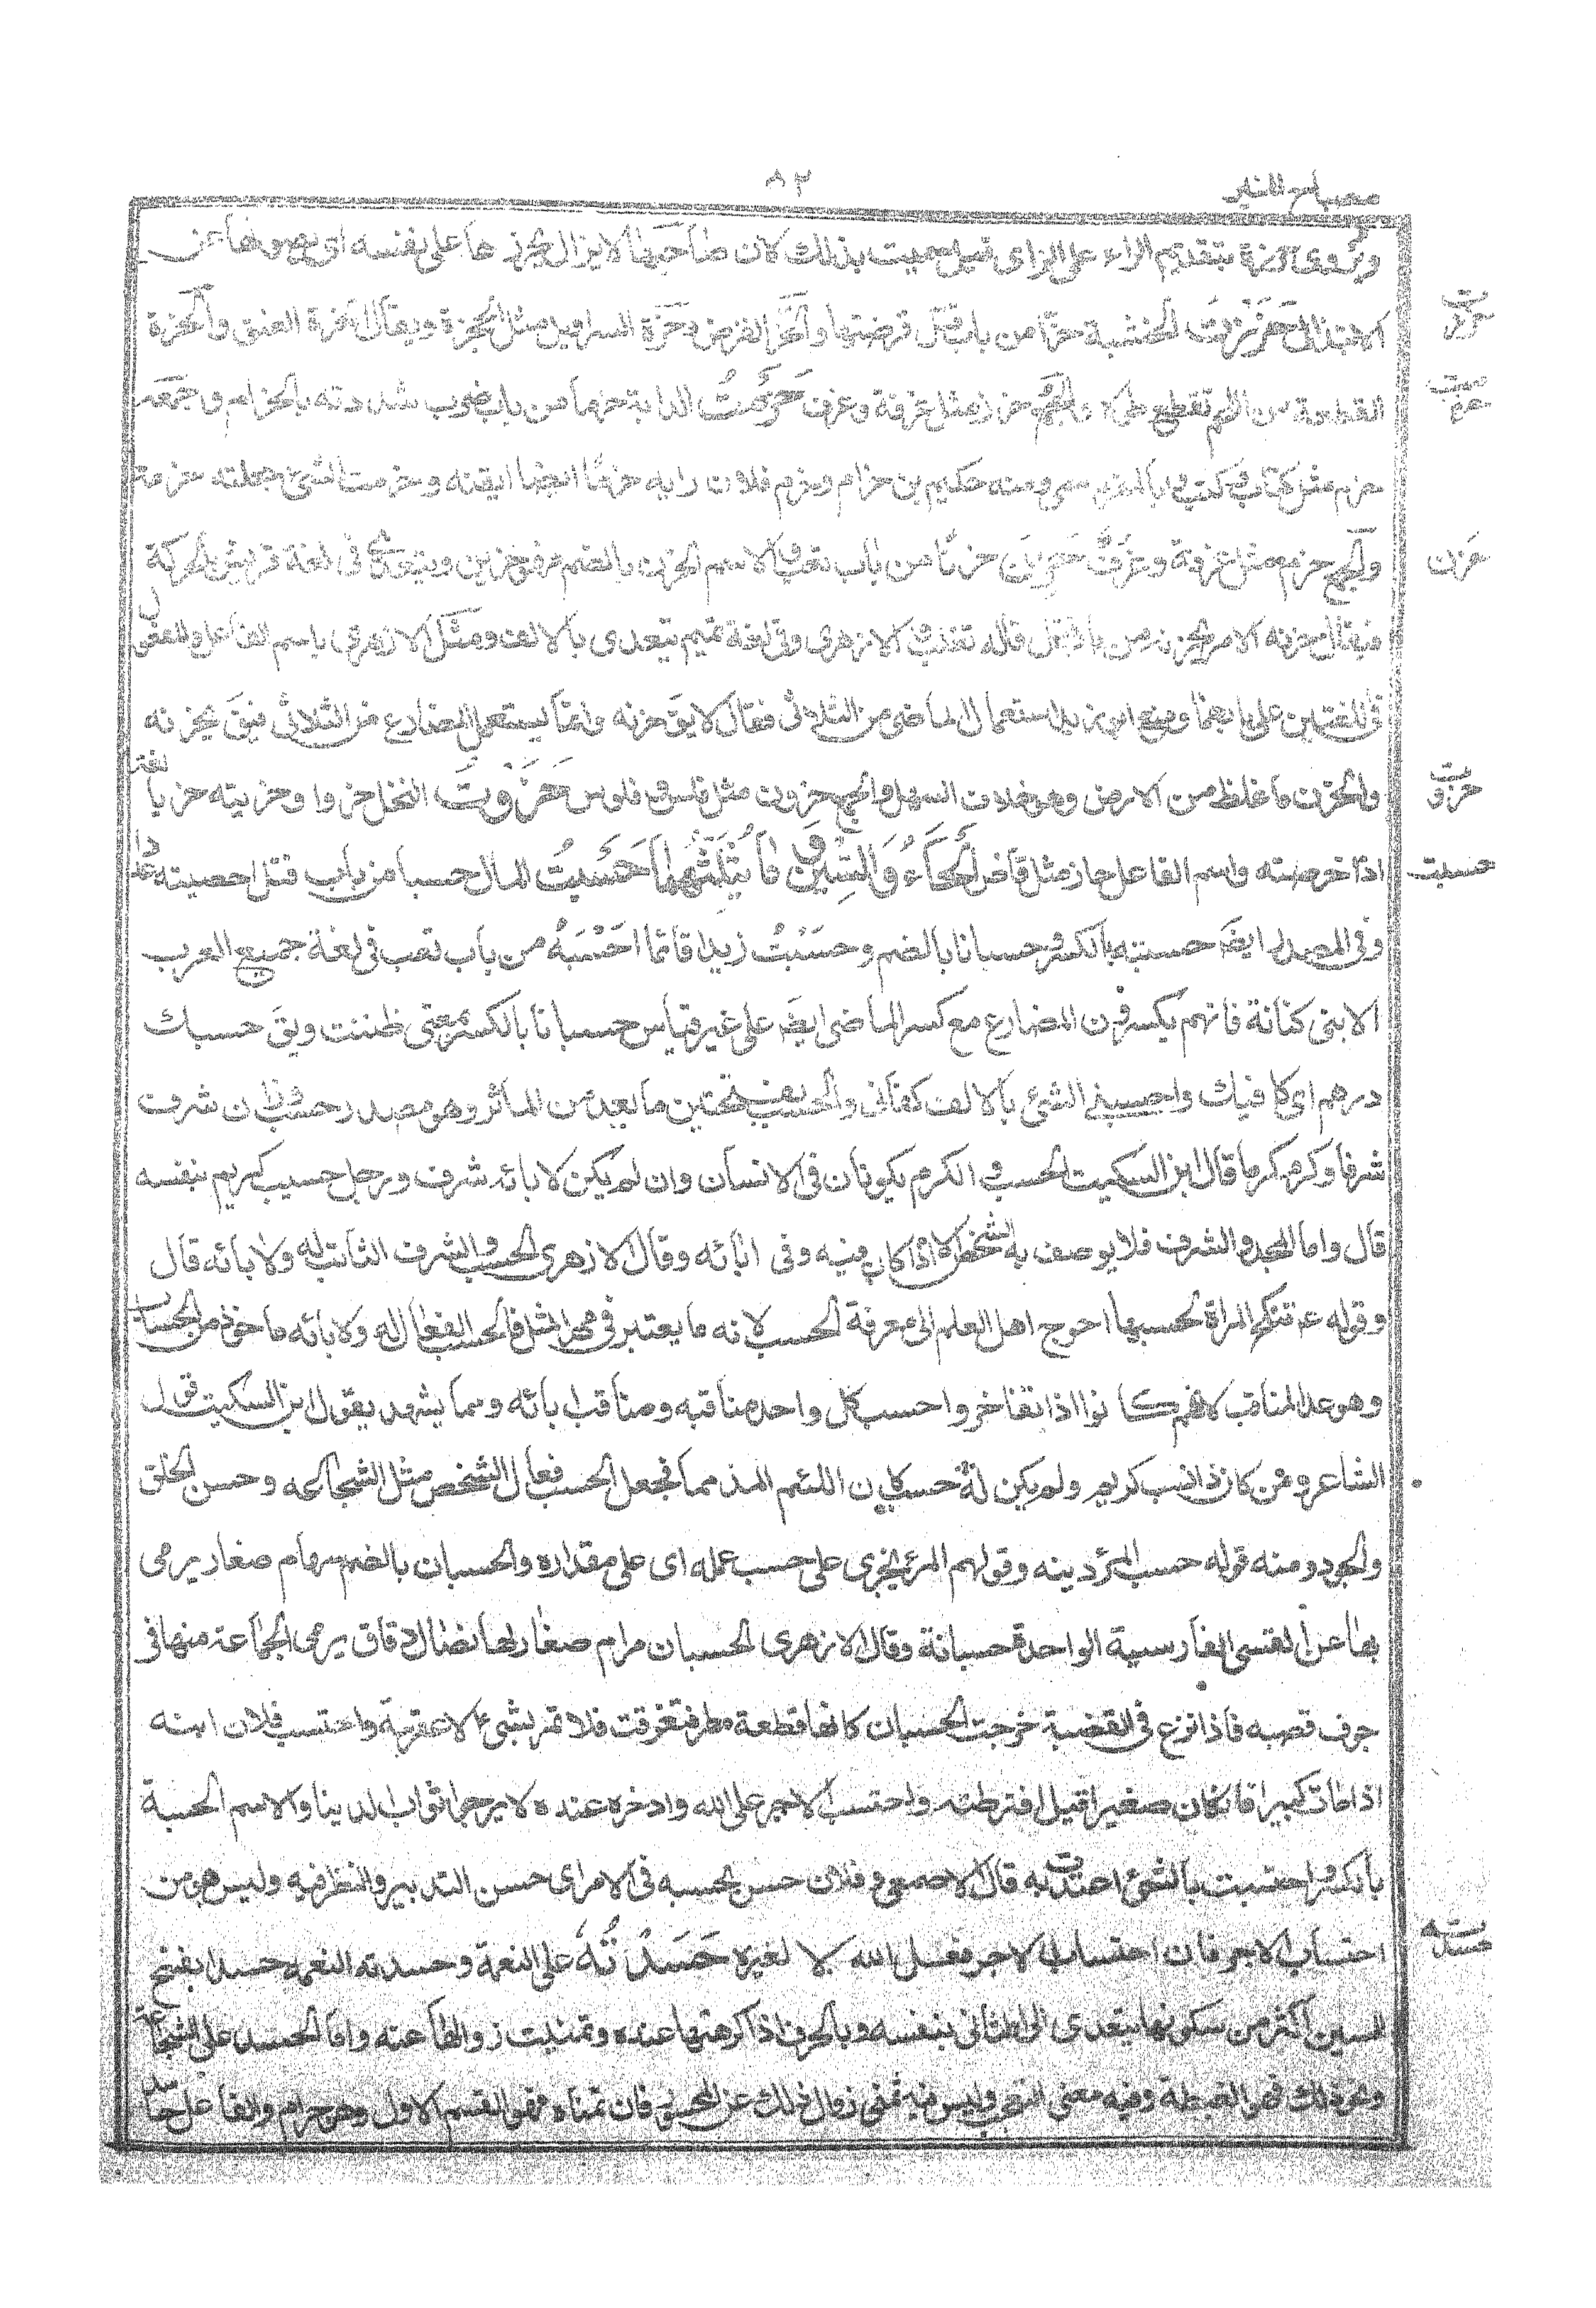 مصباح المنير
٨٢
ويروى حرزة بتقديم الراء على الزاى قيل سميت بذلك لان صاحبها لا يزال يحرزها على نفسه اى يصونها عن
الابتذال حززت الخشبة حزا من باب قتل فرضتها والحز الفرض وحزة السراويل مثل الحجزة ويقال الحزة العنق والحزة
القطعة من اللحم تقطع طولا والجمع حزز مثل غرفة وغرف حزمت الدابة حزما من باب ضرب شددته بالحزام وجمعه
حزم مثل كتاب وكتب وبالمفرد سمى ومنه حكيم بن حزام وحزم فلان رايه حزما ايضا اتقنه وحزمت الشئ جعلته حزمة
والجمع حزم مثل غرفة وغرف حزن حزنا من باب تعب والاسم الحزن بالضم فهو حزين ويتعدى فى لغة قريش بالحركة
فيقال حزنه الامر يحزنه من باب قتل قاله ثعلب والازهرى وفى لغة تميم يتعدى بالالف ومثل الازهرى باسم الفاعل والمفعول
فى اللغتين على بابهما ومنع ابو زيد استعمال الماضى من الثلاثى فقال لا يق حزنه وانما يستعمل المضارع من الثلاثى فيق يحزنه
والحزن ما غلظ من الارض وهو خلاف السهل والجمع حزون مثل فلس وفلوس حزوت النخل حزوا وحزيته حزيا لغة
اذا خرصته واسم الفاعل حاز مثل قاض الحاء والسين وما يثلثهما حسبت المال حسبا من باب قتل احصيته عددا
وفى المصدر ايضا حسبة بالكسر وحسبانا بالضم وحسبت زيدا قائما احسبه من باب تعب فى لغة جميع العرب
الا بنى كنانة فانهم يكسرون المضارع مع كسر الماضى ايضا على غير قياس حسبانا بالكسر بمعنى ظننت ويق حسبك
درهم اى كافيك واحسبنى الشئ بالالف كفانى والحسب بفتحتين ما يعد من الماثر وهو مصدر حسب وزان شرف
شرفا وكرم كرما قال ابن السكيت الحسب و الكرم يكونان فى الانسان وان لم يكن لابائه شرف ورجل حسيب كريم بنفسه
قال واما المجد والشرف فلا يوصف به الشخص الا اذا كانا فيه وفى ابائه وقال الازهرى الحسب الشرف الثابت له ولابائه قال
وقوله عم تنكح المراة لحسبها احوج اهل العلم الى معرفة الحسب لانه ما يعتبر فى مهر المثل فالحسب الفعال له ولابائه ماخوذ من الحساب
وهو عد المناقب لانهم كانوا اذا تفاخروا حسب كل واحد مناقبه ومناقب ابائه ومما يشهد بقول ابن السكيت قول
الشاعر ومن كان ذا نسب كريم ولم يكن له حسب كان اللئيم المذمما فجعل الحسب فعال الشخص مثل الشجاعه وحسن الخلق
والجود ومنه قوله حسب المرء دينه وقولهم المرء يجزى على حسب عمله اى على مقداره والحسبان بالضم سهام صغار يرمى
بها عن القسى الفارسية الواحدة حسبانة وقال الازهرى الحسبان مرام صغار لها نصال دقاق يرمى الجماعة منها فى
جوف قصبه فاذا نزع فى القصبة خرجت الحسبان كانها قطعة مطر فتفرقت فلا تمر بشئ الا عقرته واحتسب فلان ابنه
اذا مات كبيرا فان كان صغيرا قيل افترطه واحتسب الاجر على الله وادخره عنده لا يرجى ثواب الدنيا والاسم الحسبة
بالكسر واحتسبت بالشئ اعتددت به قال الاصمعى وفلان حسن الحسبه فى الامر اى حسن التدبير والنظر فيه وليس هو من
احتساب الاجر فان احتساب الاجر فعل الله لا لغيره حسدته على النعمة وحسدته النعمه حسدا بفتح
السين اكثر من سكونها يتعدى الى الثانى بنفسه وبالحرف اذا كرهتها عنده وتمنيت زوالها عنه واما الحسد على الشجاعة
ونحو ذلك فهو الغبطة وفيه معنى التعجب وليس فيه تمنى زوال ذلك عن المحسود فان تمناه فهو القسم الاول وهو حرام والفاعل حاسد
حززت
حزمت
حزن
حزوت
حسبت
حسدته